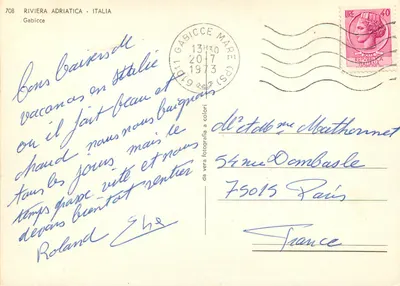 708 RIVIERA ADRIATICA - ITALIA
Gabicce
Bons baisers de
vacances en Italie
où il fait beau et
chaud nous nous baignons
tous les jours mais le
temps passe vite et nous
devons bientôt rentrer
Roland
61011 GABICCE MARE (PS)
20.7
1973
LIRE 40
de vera fotografia a colori
Mr et de Mme Mathonnet
54 rue Dombasle
75015 Paris
France